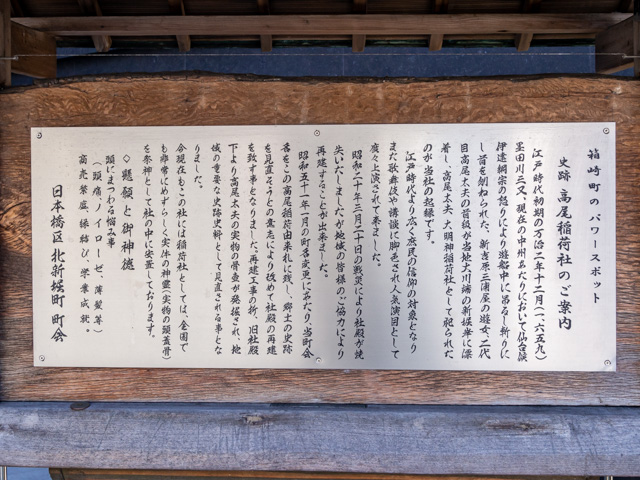 箱崎町のパワースポット
史跡 高尾稲荷社のご案内
江戸時代初期の万治二年十二月(一、六五九)
隅田川三又、現在の中州あたりにおいて仙台候
伊達綱宗の怒りにより遊船中に吊るし斬りに
し首を刎ねられた、新吉原三浦屋の遊女、二代
目高尾太夫の首級が当地大川端の新堀岸に漂
着し、高尾太夫、大明神稲荷社として祀られた
のが当社の起縁です。
江戸時代より広く庶民の信仰の対象となり
また歌舞伎や講談に脚色され人気演目として
度々上演されて来ました。
昭和二十年三月二十日の戦災により社殿が焼
失いたしましたが地域の皆様のご協力により
再建することが出来ました。
昭和五十一年一月の町名変更にあたり当町会
名をこの高尾稲荷由来札に残し、郷土の史跡
を見直そうとの意志により改めて社殿の再建
を致す事となりました、再建工事の折、旧社殿
下より高尾太夫の実物の骨壺が発掘され、地
域の重要な史跡史料として見直される事とな
りました。
今現在もこの社には稲荷社としては、全国で
も非常にめずらしく実体の神霊(実物の頭蓋骨)
を祭神として社の中に安置しております。
◇懸願と御神徳
頭にまつわる悩み事
(頭痛、ノイローゼ、薄髪等)
商売繁盛、縁結び、学業成就。
日本橋区北新堀町 町会